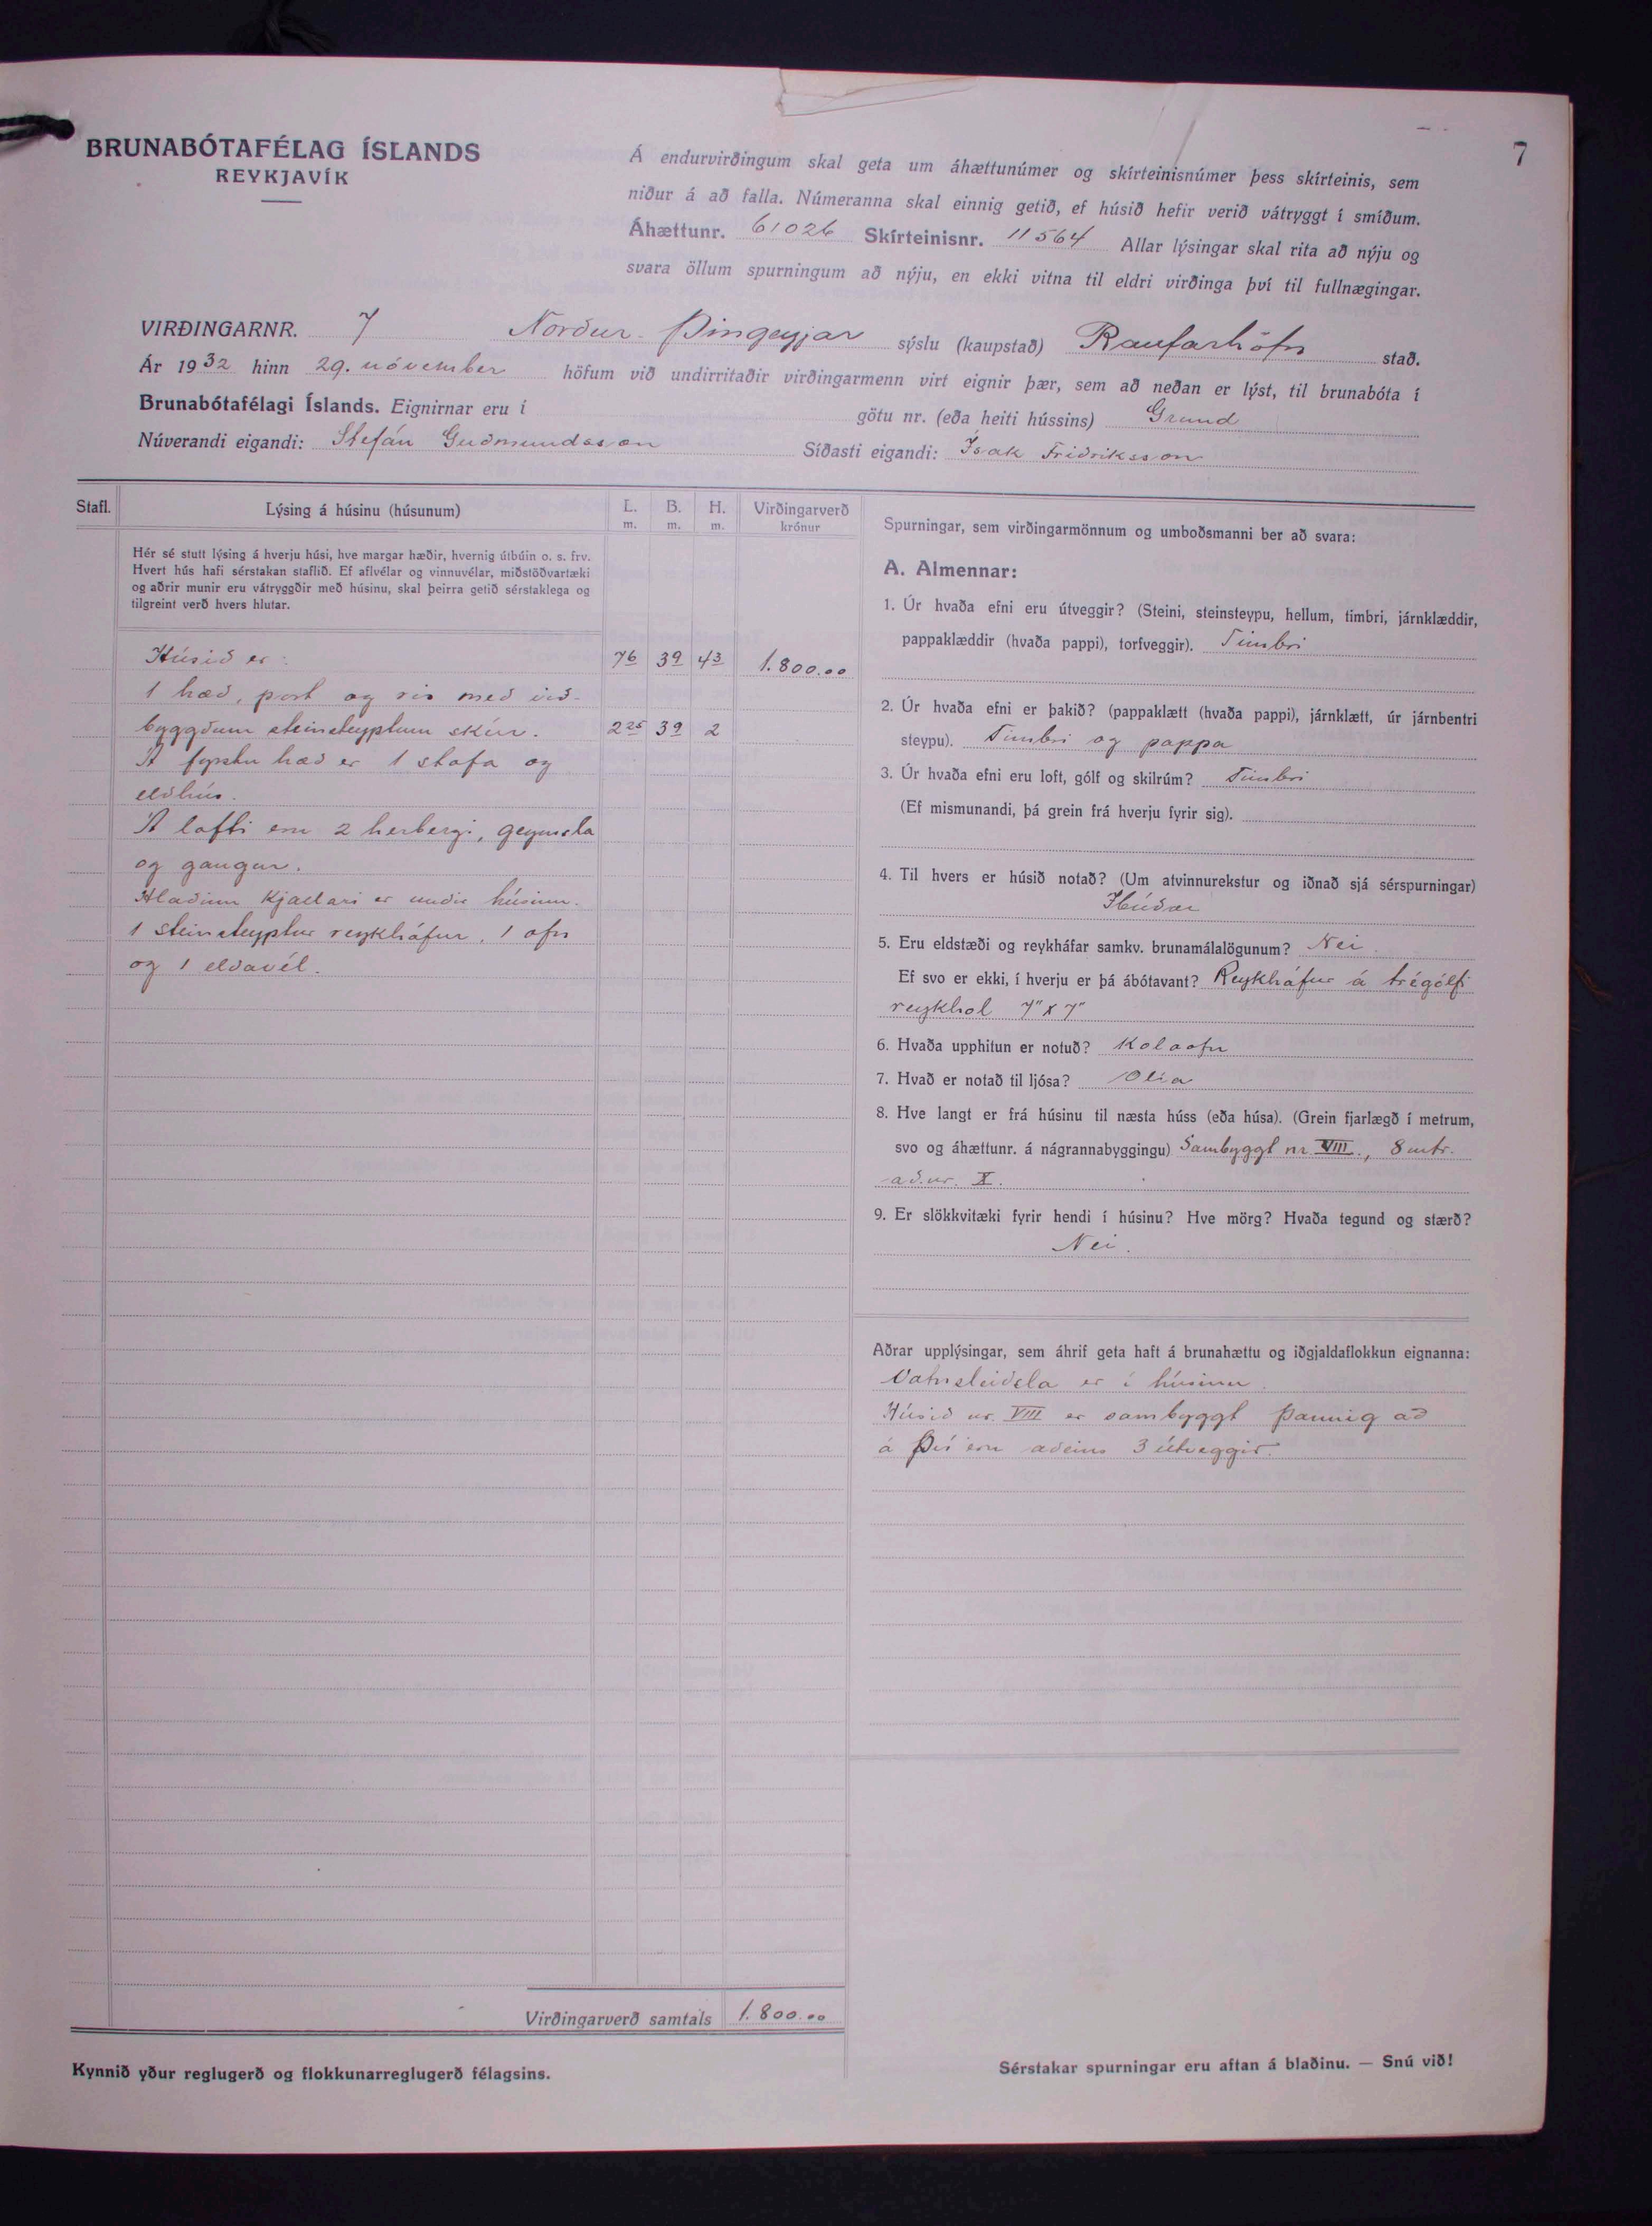 7
BRUNABÓTAFÉLAG ÍSLANDS
REYKJAVÍK
Á endurvirðingum skal geta um áhættunúmer og skírteinisnúmer þess skírteinis, sem
niður á að falla. Númeranna skal einnig getið, ef húsið hefir verið vátryggt í smíðum.
Áhættunr. 61026 Skírteinisnr. 11564 Allar lýsingar skal rita að nýju og
svara öllum spurningum að nýju, en ekki vitna til eldri virðinga því til fullnægingar.
VIRÐINGARNR. 7 Norður-Þingeyjar sýslu (kaupstað) Raufarhöfn stað.
Ár 1932 hinn 29. nóvember höfum við undirritaðir virðingarmenn virt eignir þær, sem að neðan er lýst, til brunabóta í
Brunabótafélagi Íslands. Eignirnar eru í götu nr. (eða heiti hússins) Grund
Núverandi eigandi: Stefán Guðmundsson Síðasti eigandi: Ísak Friðriksson
Stafl. Lýsing á húsinu (húsunum) L. m. B. m. H. m. Virðingarverð krónur
Hér sé stutt lýsing á hverju húsi, hve margar hæðir, hvernig útbúin o. s. frv.
Hvert hús hafi sérstakan staflið. Ef aflvélar og vinnuvélar, miðstöðvartæki
og aðrir munir eru vátryggðir með húsinu, skal þeirra getið sérstaklega og
tilgreint verð hvers hlutar.
Húsið er: 76 39 43 1.800.00
1 hæð, port og ris með við-
byggðum steinsteyptum skúr. 2 25 39 2
Á fyrstu hæð er 1 stofa og
eldhús.
Á lofti eru 2 herbergi, geymsla
og gangur.
Hlaðinn kjallari er undir húsinu.
1 steinsteyptur reykháfur, 1 ofn
og 1 eldavél.
Virðingarverð samtals 1.800.00
Kynnið yður reglugerð og flokkunarreglugerð félagsins.
Spurningar, sem virðingarmönnum og umboðsmanni ber að svara:
A. Almennar:
1. Úr hvaða efni eru útveggir? (Steini, steinsteypu, hellum, timbri, járnklæddir,
pappaklæddir (hvaða pappi), torfveggir). Timbri
2. Úr hvaða efni er þakið? (pappaklætt (hvaða pappi), járnklætt, úr járnbentri
steypu). Timbri og pappa
3. Úr hvaða efni eru loft, gólf og skilrúm? Timbri
(Ef mismunandi, þá grein frá hverju fyrir sig).
4. Til hvers er húsið notað? (Um atvinnurekstur og iðnað sjá sérspurningar)
Íbúðar
5. Eru eldstæði og reykháfar samkv. brunamálalögunum? Nei.
Ef svo er ekki, í hverju er þá ábótavant? Reykháfur á trégólfi
reykhol 7" x 7"
6. Hvaða upphitun er notuð? Kolaofn
7. Hvað er notað til ljósa? Olía
8. Hve langt er frá húsinu til næsta húss (eða húsa). (Grein fjarlægð í metrum,
svo og áhættunr. á nágrannabyggingu) Sambyggt nr. VIII., 8 mtr.
að nr. X.
9. Er slökkvitæki fyrir hendi í húsinu? Hve mörg? Hvaða tegund og stærð?
Nei.
Aðrar upplýsingar, sem áhrif geta haft á brunahættu og iðgjaldaflokkun eignanna:
Vatnsleiðsla er í húsinu.
Húsið nr. VIII er sambyggt þannig að
á því eru aðeins 3 útveggir.
Sérstakar spurningar eru aftan á blaðinu. — Snú við!